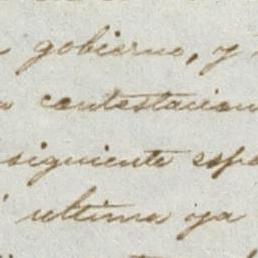 gobierno, y
contestacion
siguiente espo
ultima ya